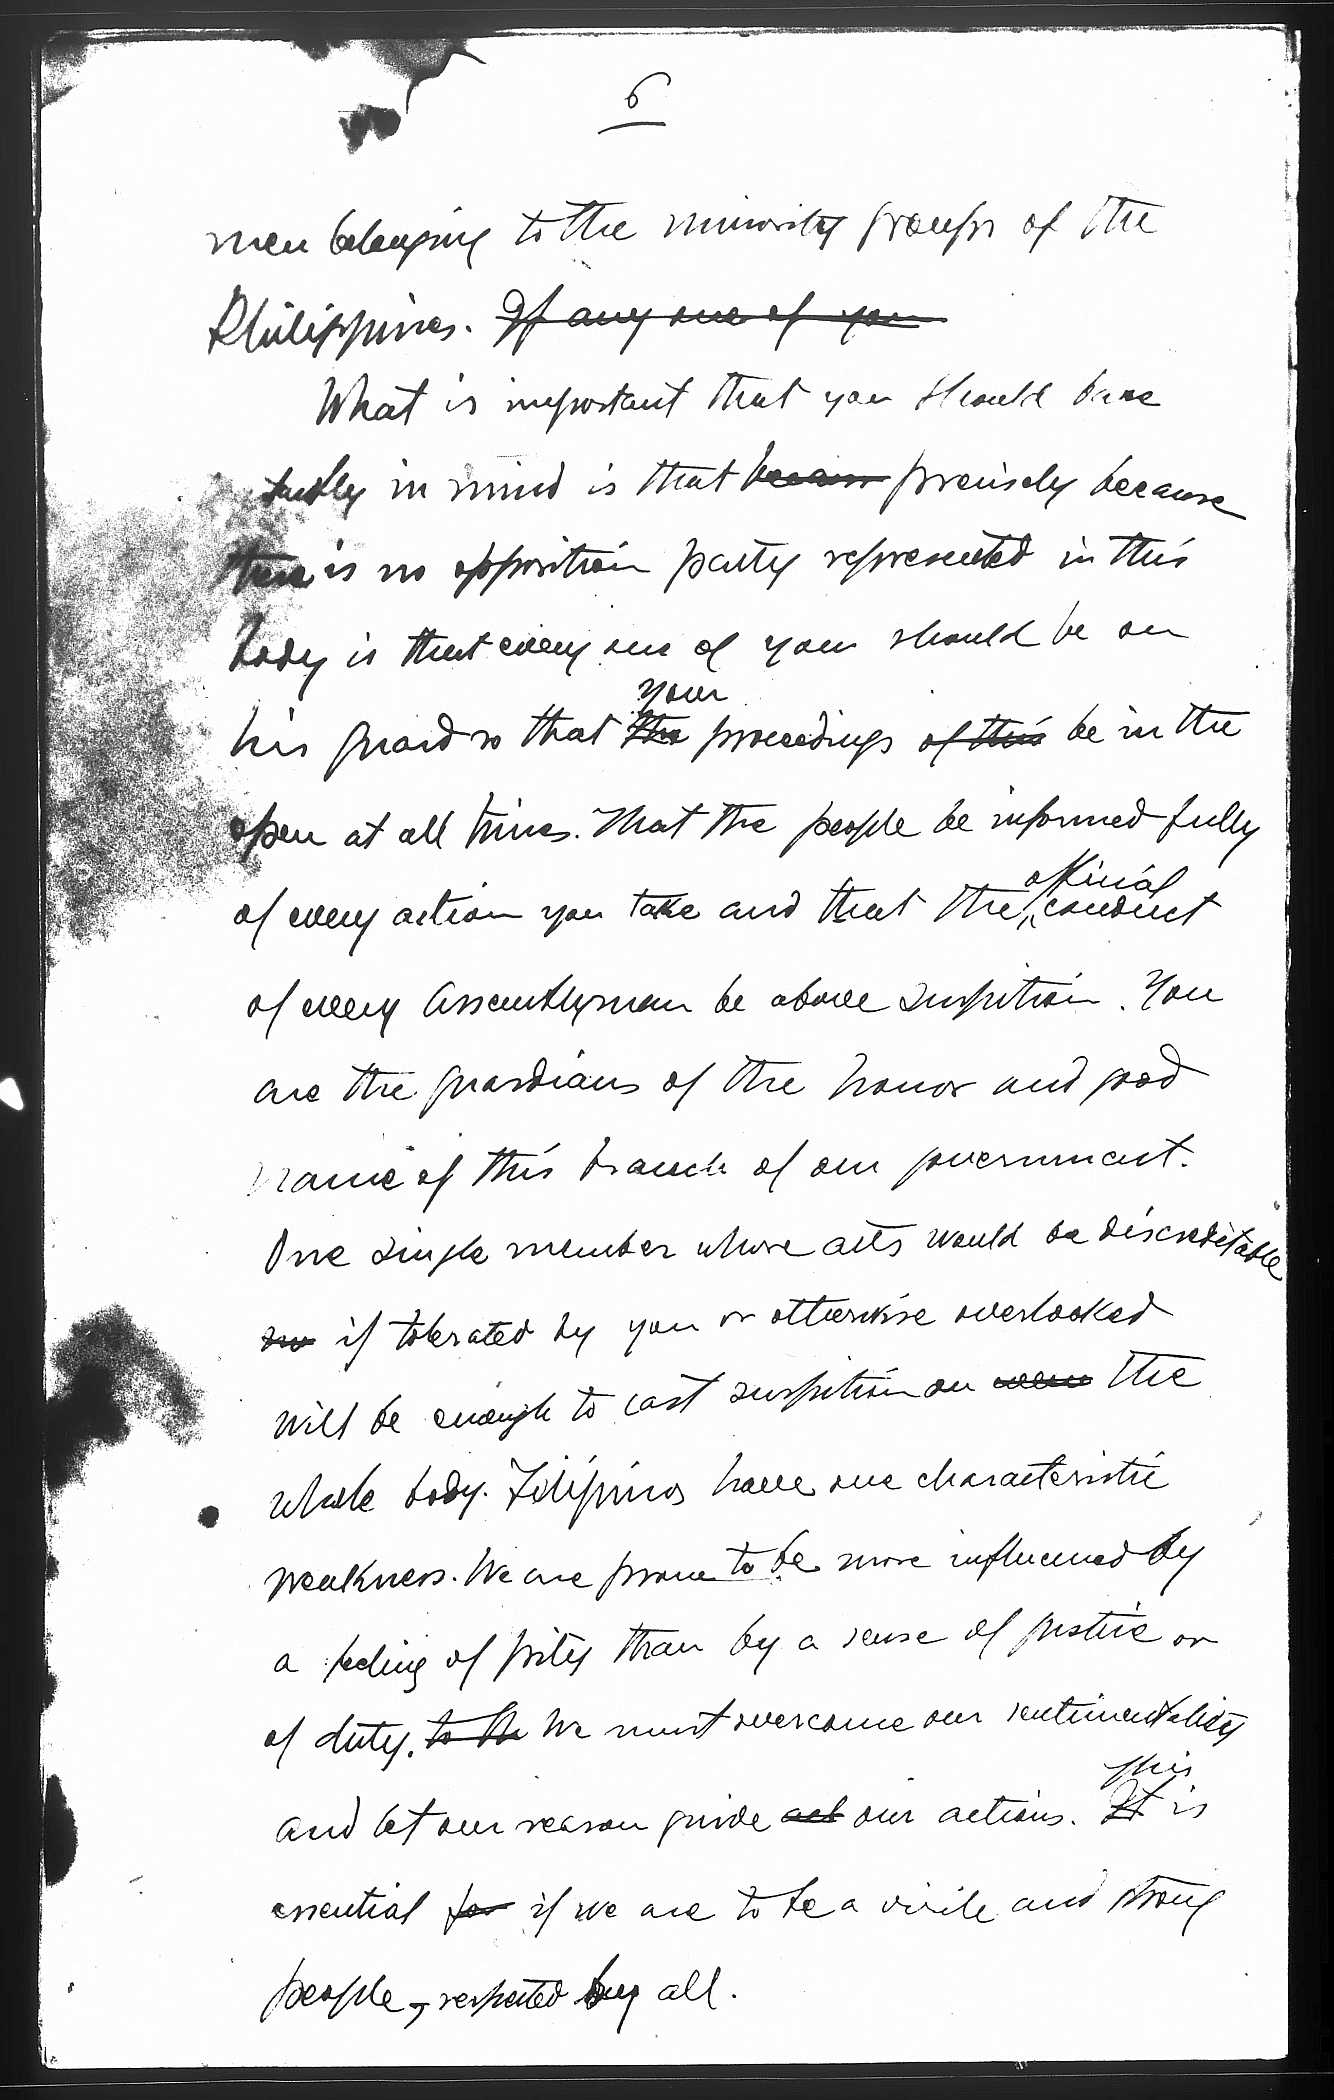 6
men belonging to the minority groups of the
Philippines. If any one of you
What is important that you should have
in mind is that because precisely because
there is no opposition party represented in this
body is that every one of you should be on
your
his guard so that the proceedings of this be in the
open at all times. That the people be informed fully
official
of every action you take and that the conduct
of every Assemblyman be above suspition. You
are the guardians of the honor and good
name of this branch of our government.
One single member whose acts would be discreditable
if tolerated by you or otherwise overlooked
will be enough to cast suspition on the
whole body. Filipinos have one characteristic
weakness. We are prone to be more influenced by
a feeling of pity than by a sense of justice or
of duty. to the We must overcome our sentimentality
this
and let our reason guide act our actions. It is
essential for if we are to be a virile and strong
people, respected by all.